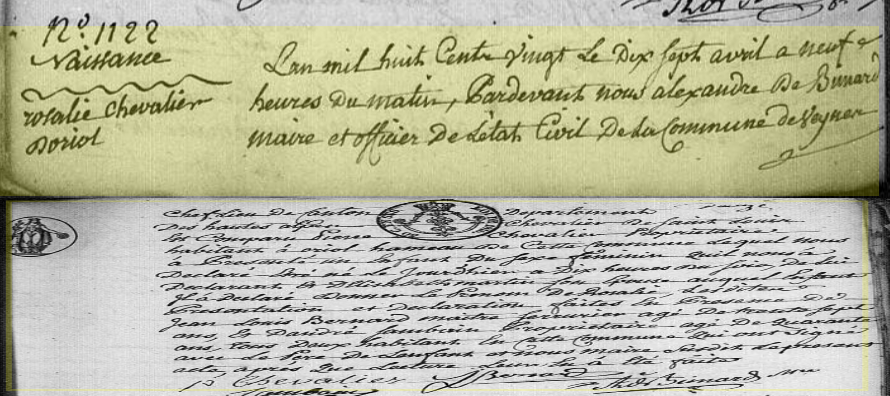 N.º 1122
Naissance
rosalie chevalier
Doriol
Lan mil huit Cents vingt Le Dix sept avril a neuf
heures Du matin, Pardevant nous alexandre De Bimard
maire et officier De Létat Civil De La Commune de Veynes
Chef Lieu De Canton Departement
Des hautes alpes Chevalier De Saint Louis
Est Comparu Pierre Chevalier Proprietaire
habitant à oriol hameau De Cette Commune Lequel nous
à Presenté un Enfant Du Sexe feminin quil nous a
Declaré être né Le Jour Dhier a Dix heures Du soir, De Lui
Declarant & Martin Son Epouse auquel Enfant
Il à Declaré Donner Le Prenom De Rosalie, Lesdites
Presentation et Declaration faites En Presence De
Jean Louis Bernard maitre serrurier agé De trente sept
ans, & andré Jambouin Proprietaire agé De Quarante
ans, tous Deux habitant De Cette Commune Qui ont Signé
avec Le Pere De Lenfant et nous maire Le present
acte, apres Que Lecture Leur En a été faite
P Chevalier Bernard Alde Bimard mre